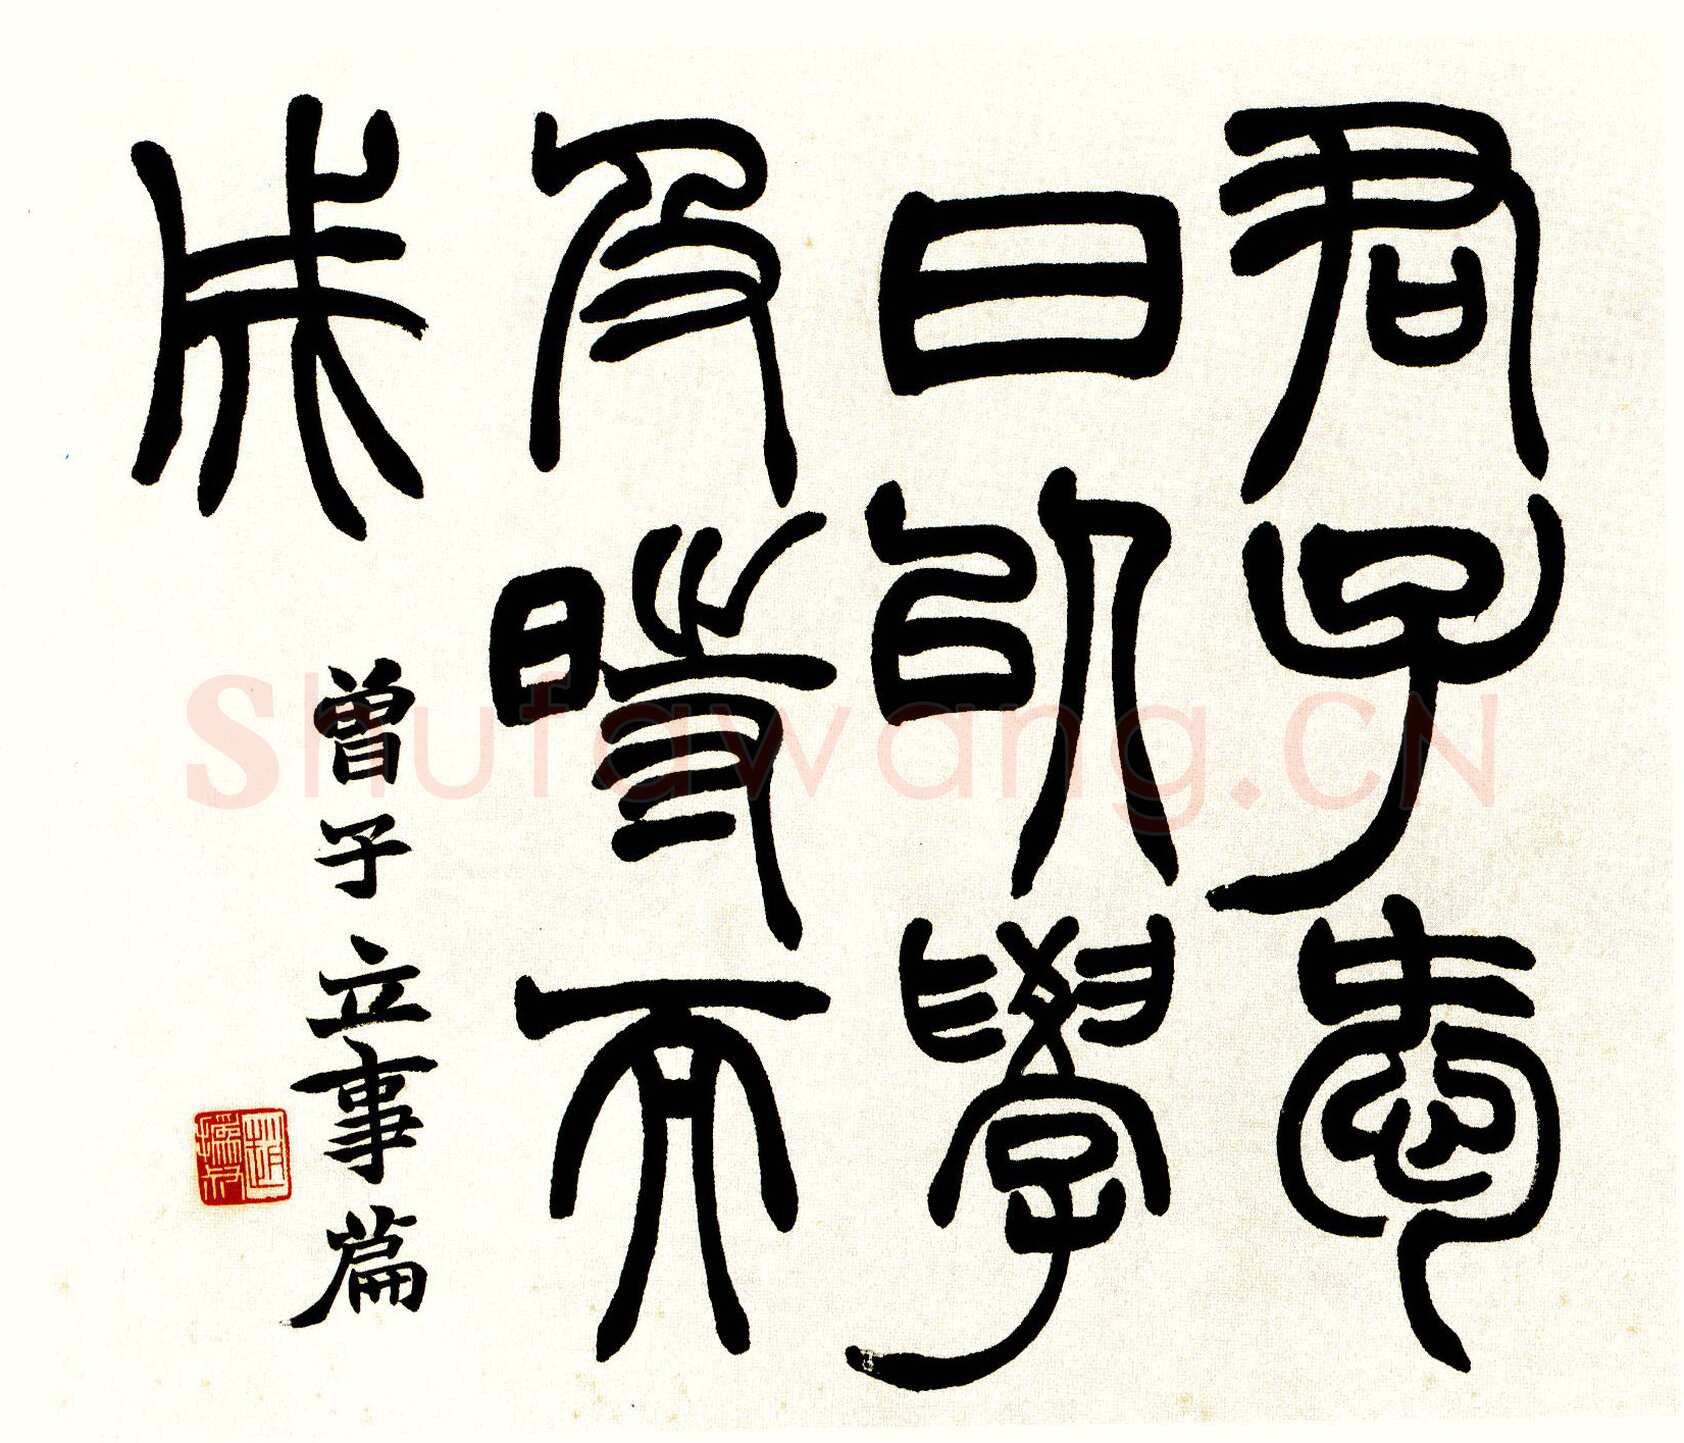 君子愛
日以學
及時而
成
曾子立事篇
趙
撝叔
Shufawang.CN